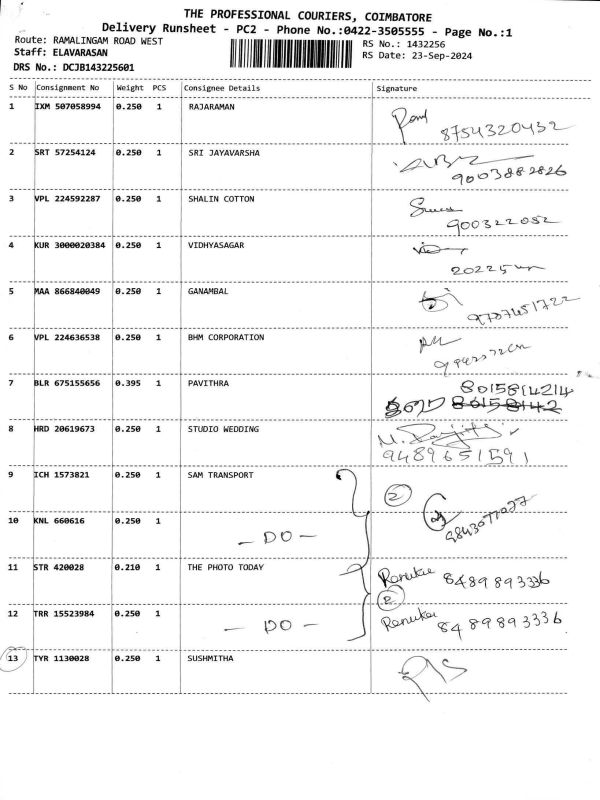 THE PROFESSIONAL COURIERS, COIMBATORE
Delivery Runsheet - PC2 - Phone No.:0422-3505555 - Page No.:1
Route: RAMALINGAM ROAD WEST RS No.: 1432256
Staff: ELAVARASAN RS Date: 23-Sep-2024
DRS No.: DCJB143225601
S No Consignment No Weight PCS Consignee Details Signature
1 IXM 507058994 0.250 1 RAJARAMAN
8754320432
2 SRT 57254124 0.250 1 SRI JAYAVARSHA
9003882826
3 VPL 224592287 0.250 1 SHALIN COTTON
900322052
4 KUR 3000020384 0.250 1 VIDHYASAGAR
5 MAA 866840049 0.250 1 GANAMBAL
9787451722
6 VPL 224636538 0.250 1 BHM CORPORATION
7 BLR 675155656 0.395 1 PAVITHRA 8015814214
8 HRD 20619673 0.250 1 STUDIO WEDDING
9489651591
9 ICH 1573821 0.250 1 SAM TRANSPORT
2
10 KNL 660616 0.250 1
- DO -
11 STR 420028 0.210 1 THE PHOTO TODAY
Renuka 8489893336
2
12 TRR 15523984 0.250 1
- DO - Renuka 8489893336
13 TYR 1130028 0.250 1 SUSHMITHA